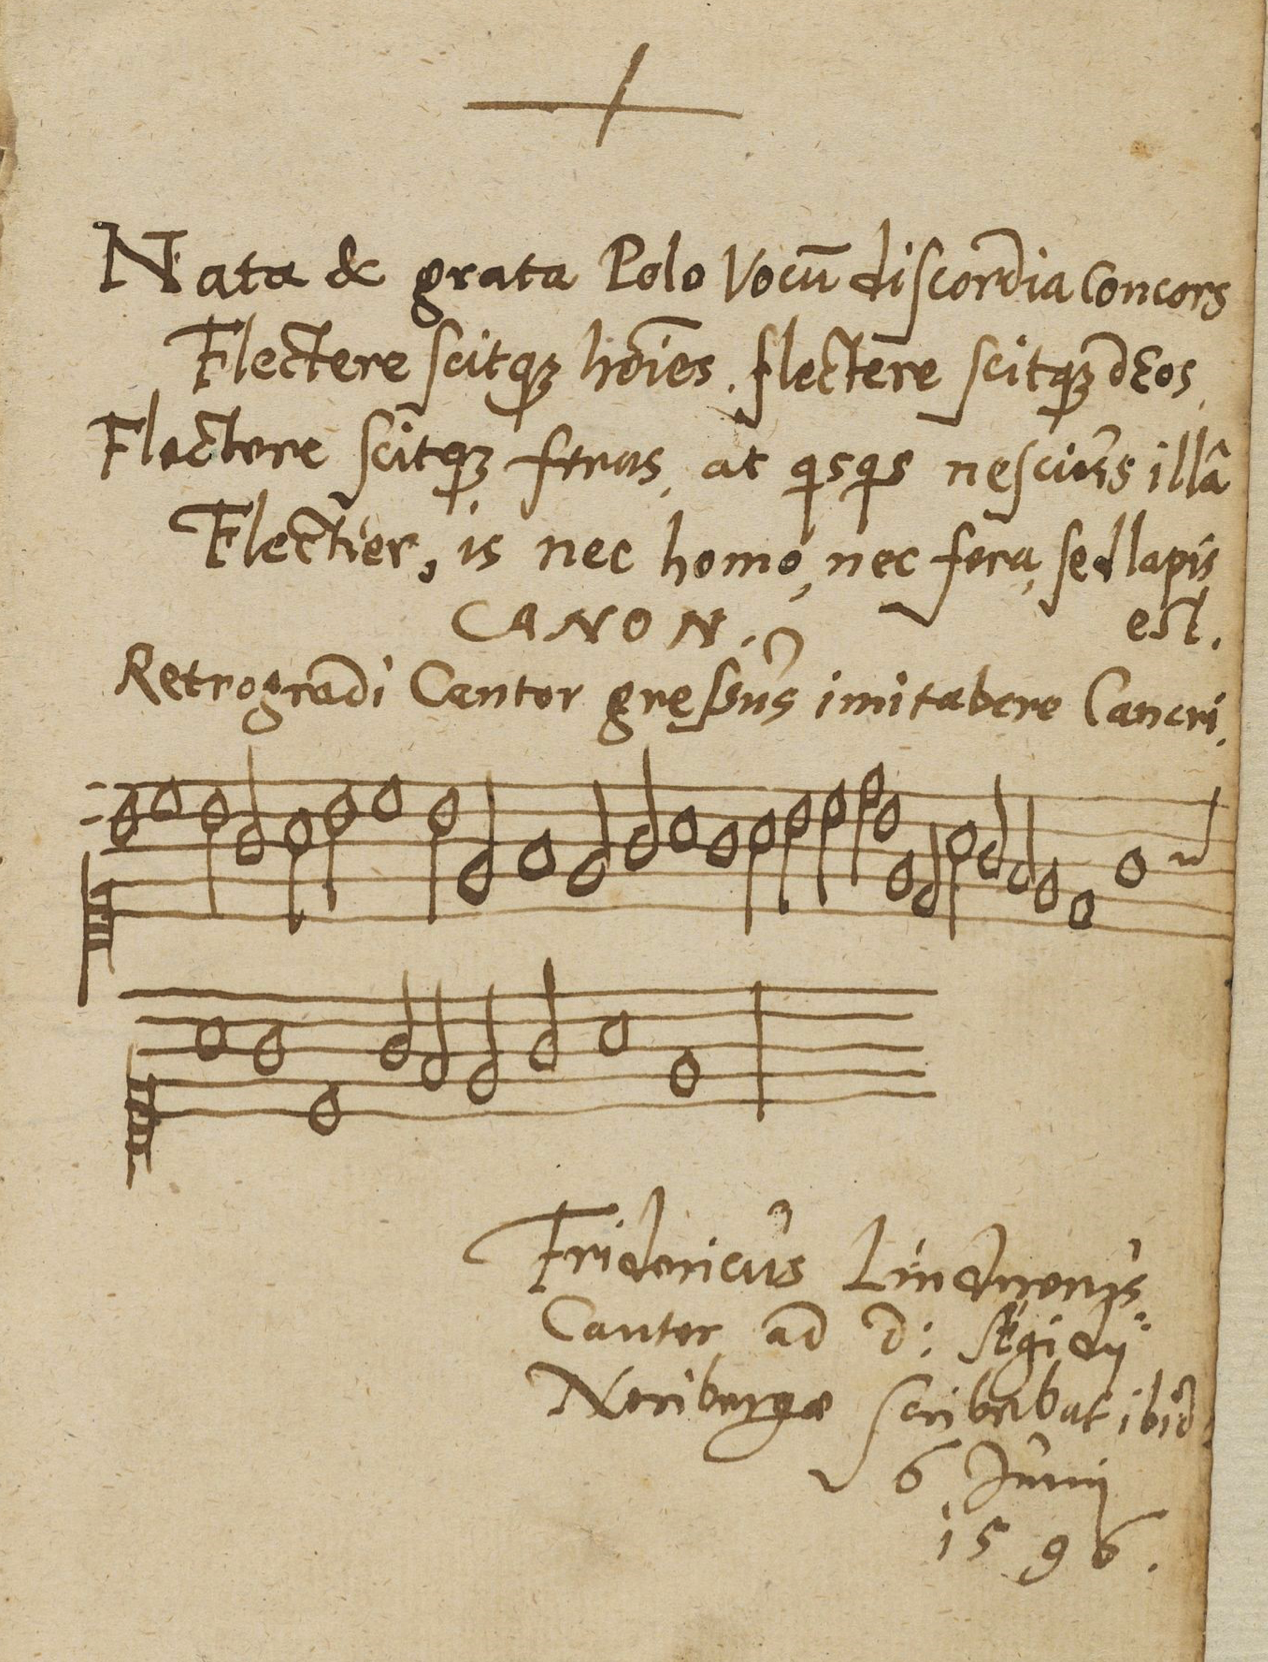 Nata & grata Polo Vocū discordia concors
Flectere scitqꝫ hōīes. flectere scitqꝫ dEos
Flectere scitqꝫ feras, at qisqis nescius illā
Flectier, is nec homo, nec fera, sed lapis
est.
CANON.
Retrogradi Cantor gręssus imitabere Cancri.
Fridericus Lindnerus
Cantor ad d: Ægidij
Noribergæ scribebat ibid:
6 Junij
1596.